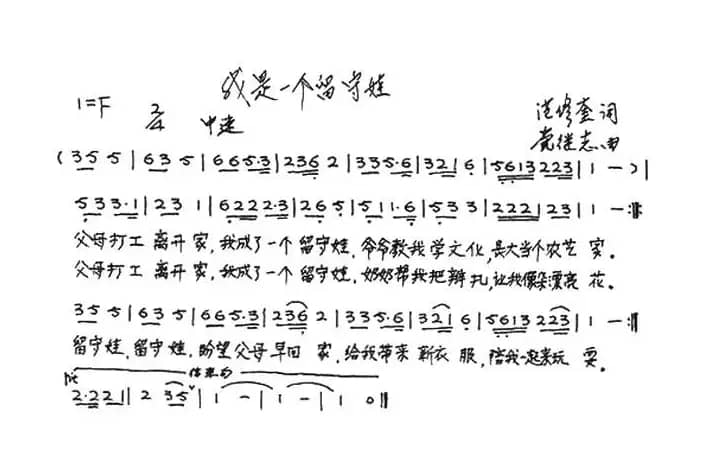 我是一个留守娃
1=F 2/4 中速
范修奎 词
党继志 曲
(35 5 | 63 5 | 665·3 | 236 2 | 335·6 | 321 6 | 5613 223 | 1 — ) |
533·1 | 23 1 | 6222·3 | 26 5 | 511·6 | 53 3 | 222 1 23 | 1 — :||
父母打工 离开 家，我成了一个 留守娃，爷爷教我 学文化，长大当个农艺 家。
父母打工 离开 家，我成了一个 留守娃，奶奶帮我 把辫 扎，让我像朵漂亮 花。
35 5 | 63 5 | 665·3 | 236 2 | 335·6 | 321 6 | 5613 223 | 1 — :||
留守娃，留守娃，盼望父母早回 家，给我带来 新衣 服，陪我一起来玩 耍。
结束句
2·221 | 2 35 | 1 — | 1 — | 1 0 ||